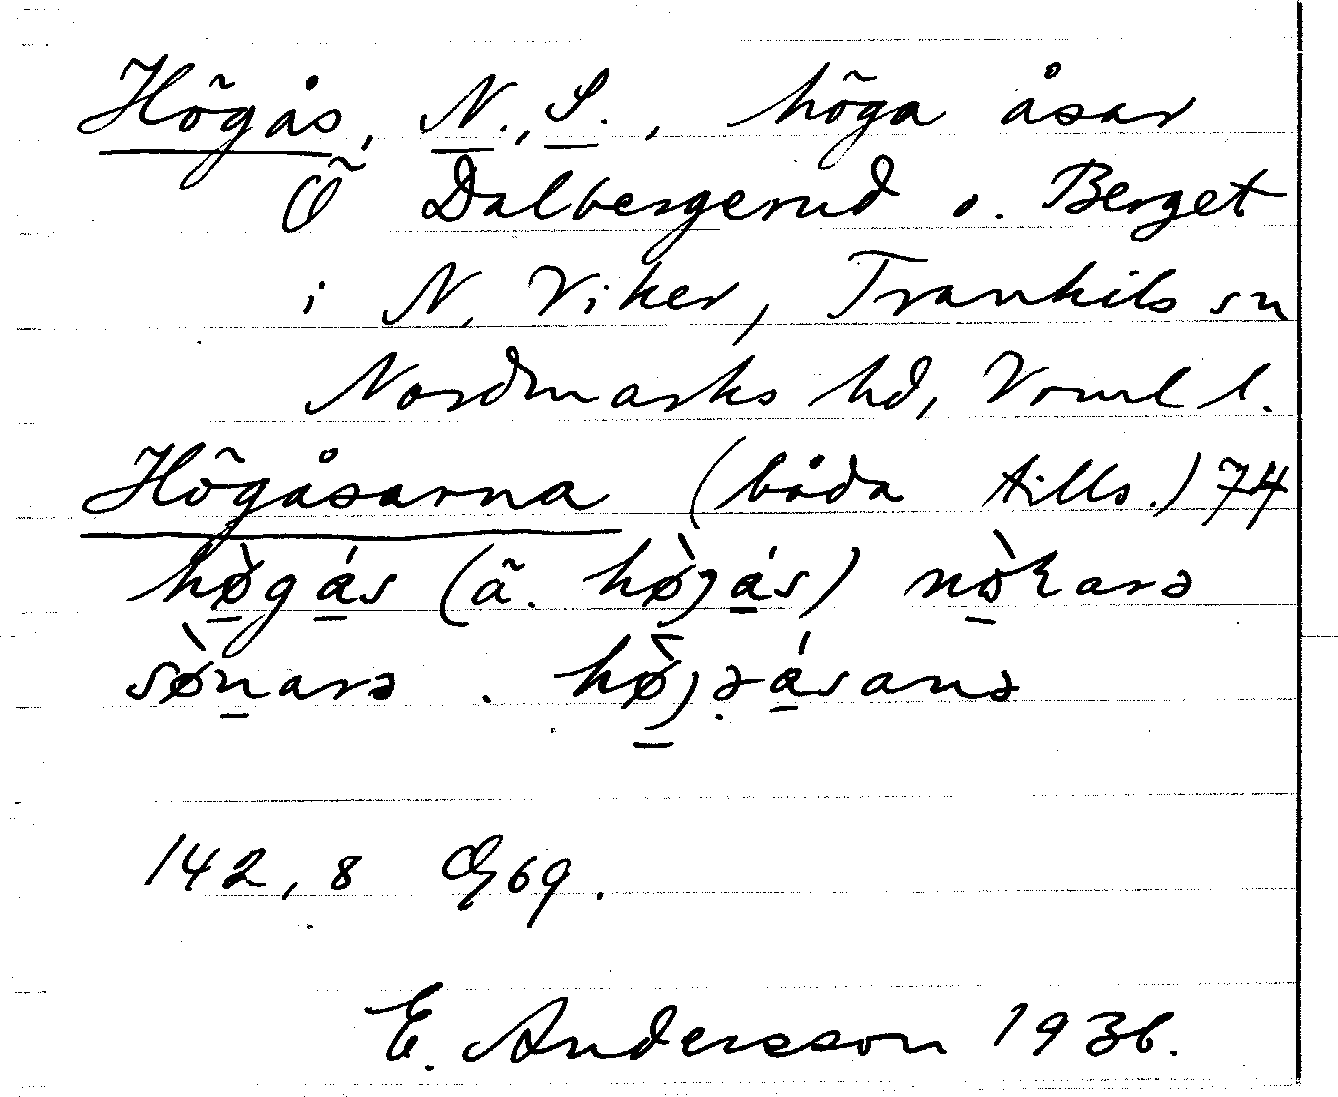 Högås, N., S., höga åsar
Ö Dalbergerud o. Berget
i N. Viker, Trankils sn
Nordmarks hd, Vrml l.
Högåsarna (båda tills.) 74
hø̀gás (ä. hø̀jás)
sø̀narə . hø̀jəásanə
142, 8 69.
E. Andersson 1936.